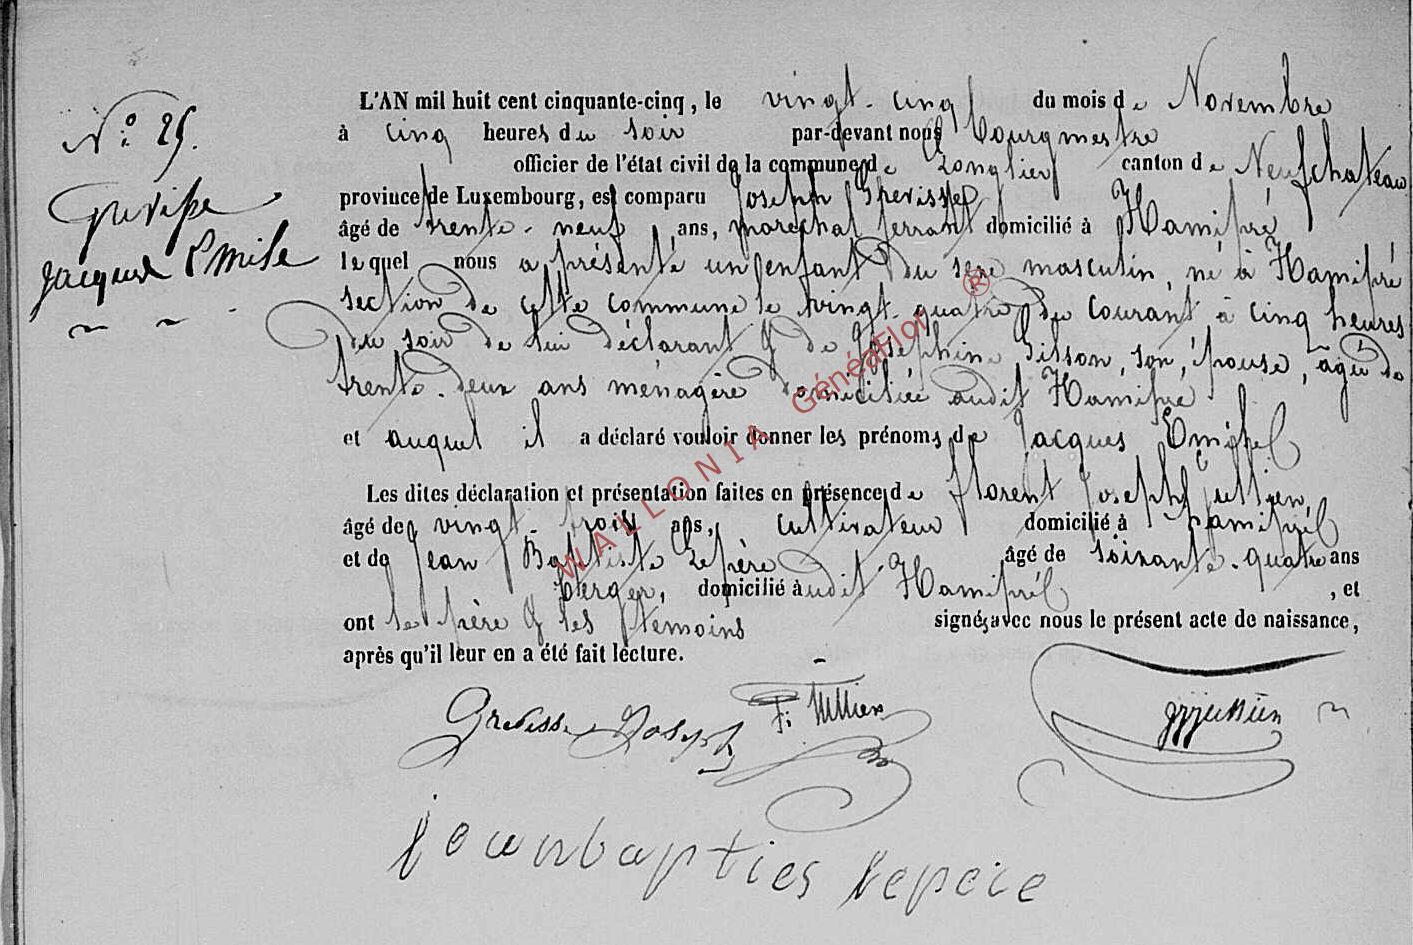 N° 25.
Grevisse
Jacques Emile
L'AN mil huit cent cinquante-cinq, le vingt-cinq du mois de Novembre
à cinq heures du soir par-devant nous Bourgmestre
officier de l'état civil de la commune de Longlier canton de Neufchateau
province de Luxembourg, est comparu Joseph Grevisse
âgé de trente-neuf ans, marechal ferrant domicilié à Hamipré
lequel nous a présenté un enfant du sexe masculin, né à Hamipré
section de cette commune le vingt quatre du courant à cinq heures
du soir de lui déclarant & de Joséphine Gilson, son épouse, agée de
trente-deux ans ménagère domiciliée audit Hamipré
et auquel il a déclaré vouloir donner les prénoms de Jacques Emile
Les dites déclaration et présentation faites en présence de Florent Joseph
âgé de vingt-trois ans, cultivateur domicilié à Hamipré
et de Jean Baptiste Lepère âgé de soixante-quatre ans
berger, domicilié audit Hamipré , et
ont le père & les témoins signés avec nous le présent acte de naissance,
après qu'il leur en a été fait lecture.
Grevisse Joseph
jeanbapties lepere
WALLONIA GénéaFlor ®